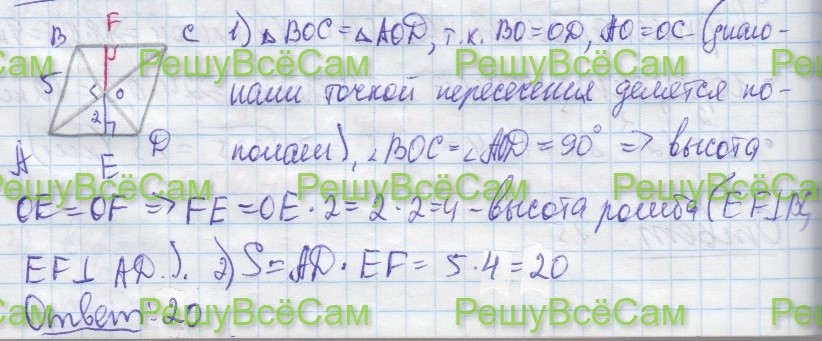 B F C 1) △BOC = △AOD, т.к. BO = OD, AO = OC (диаго-
5 O нами точкой пересечения делятся по-
2 A E D полам), ∠BOC = ∠AOD = 90° => высота
OE = OF => FE = OE · 2 = 2 · 2 = 4 - высота ромба (EF ⊥ BC,
EF ⊥ AD.). 2) S = AD · EF = 5 · 4 = 20
Ответ: 20
РешуВсёСам РешуВсёСам
РешуВсёСам РешуВсёСам РешуВсёСам
РешуВсёСам РешуВсёСам РешуВсёСам